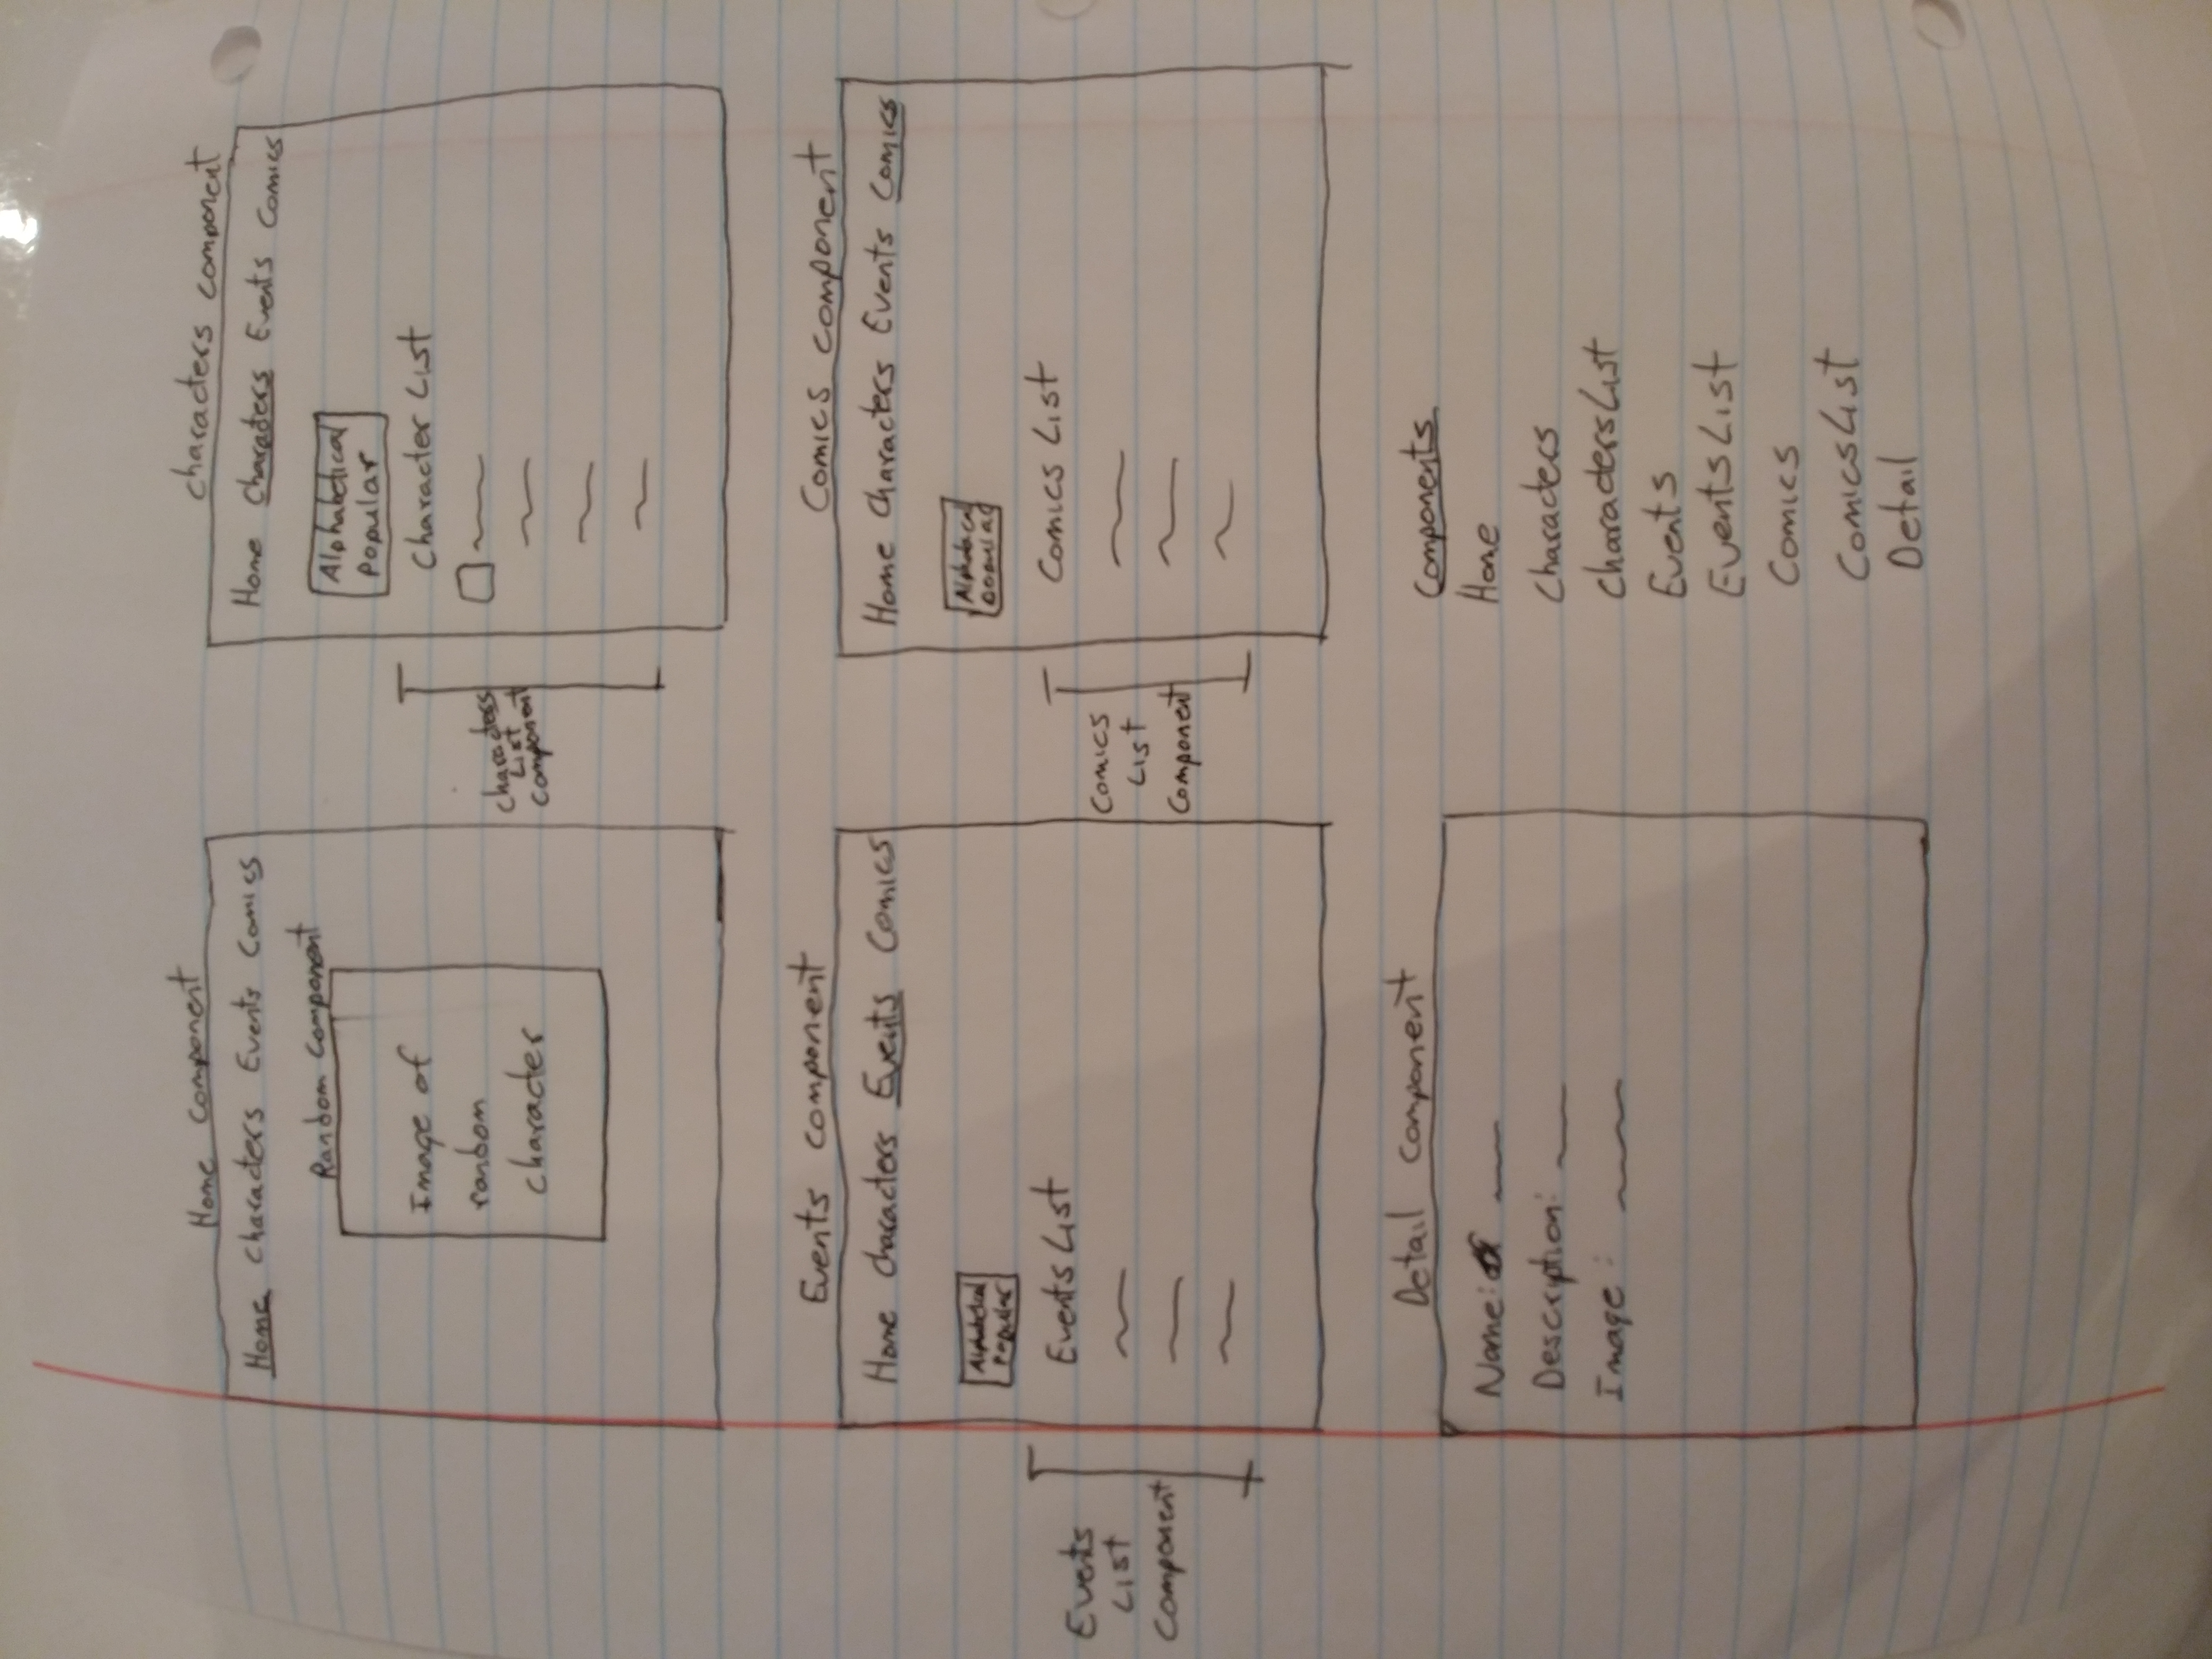 Home Component
Home Characters Events Comics
Random Component
Image of
random
character
Characters component
Home Characters Events Comics
Alphabetical
Popular
Character List
Characters
List
Component
Events component
Home Characters Events Comics
Alphabetical
Popular
Events List
Events
List
Component
Comics component
Home Characters Events Comics
Popular
Comics List
Comics
List
Component
Detail component
Name:
Description:
Image :
Components
Home
Characters
CharactersList
Events
EventsList
Comics
ComicsList
Detail